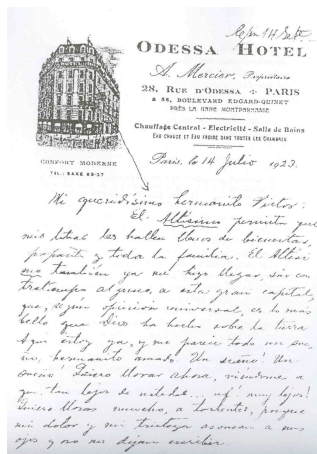 14 Set
ODESSA HOTEL
A. Mercier, Propriétaire
28, RUE D'ODESSA PARIS
& 56, BOULEVARD EDGARD-QUINET
PRÈS LA GARE MONTPARNASSE
Chauffage Central - Electricité - Salle de Bains
EAU CHAUDE ET EAU FROIDE DANS TOUTES LES CHAMBRES
CONFORT MODERNE
TÉL: SAXE 63-27
Paris, le 14 Julio 1923.
Mi queridísimo hermanito Víctor:
El Altísimo permita que
mis letras les hallen llenos de bienestar,
y toda la familia. El Altísi
mo también ya me hizo llegar, sin con
tratiempo alguno, a esta gran capital,
que, según opinión universal, es lo más
bello que Dios ha hecho sobre la tierra
Aquí estoy ya, y me parece todo un sue
ño, hermanito amado! Un sueño! Un
sueño! Quiero llorar ahora, viéndome a
quí, tan lejos de ustedes... uf! muy lejos!
Quiero llorar mucho, a torrentes, porque
mi dolor y mi asoman a mis
ojos y no me dejan escribir.